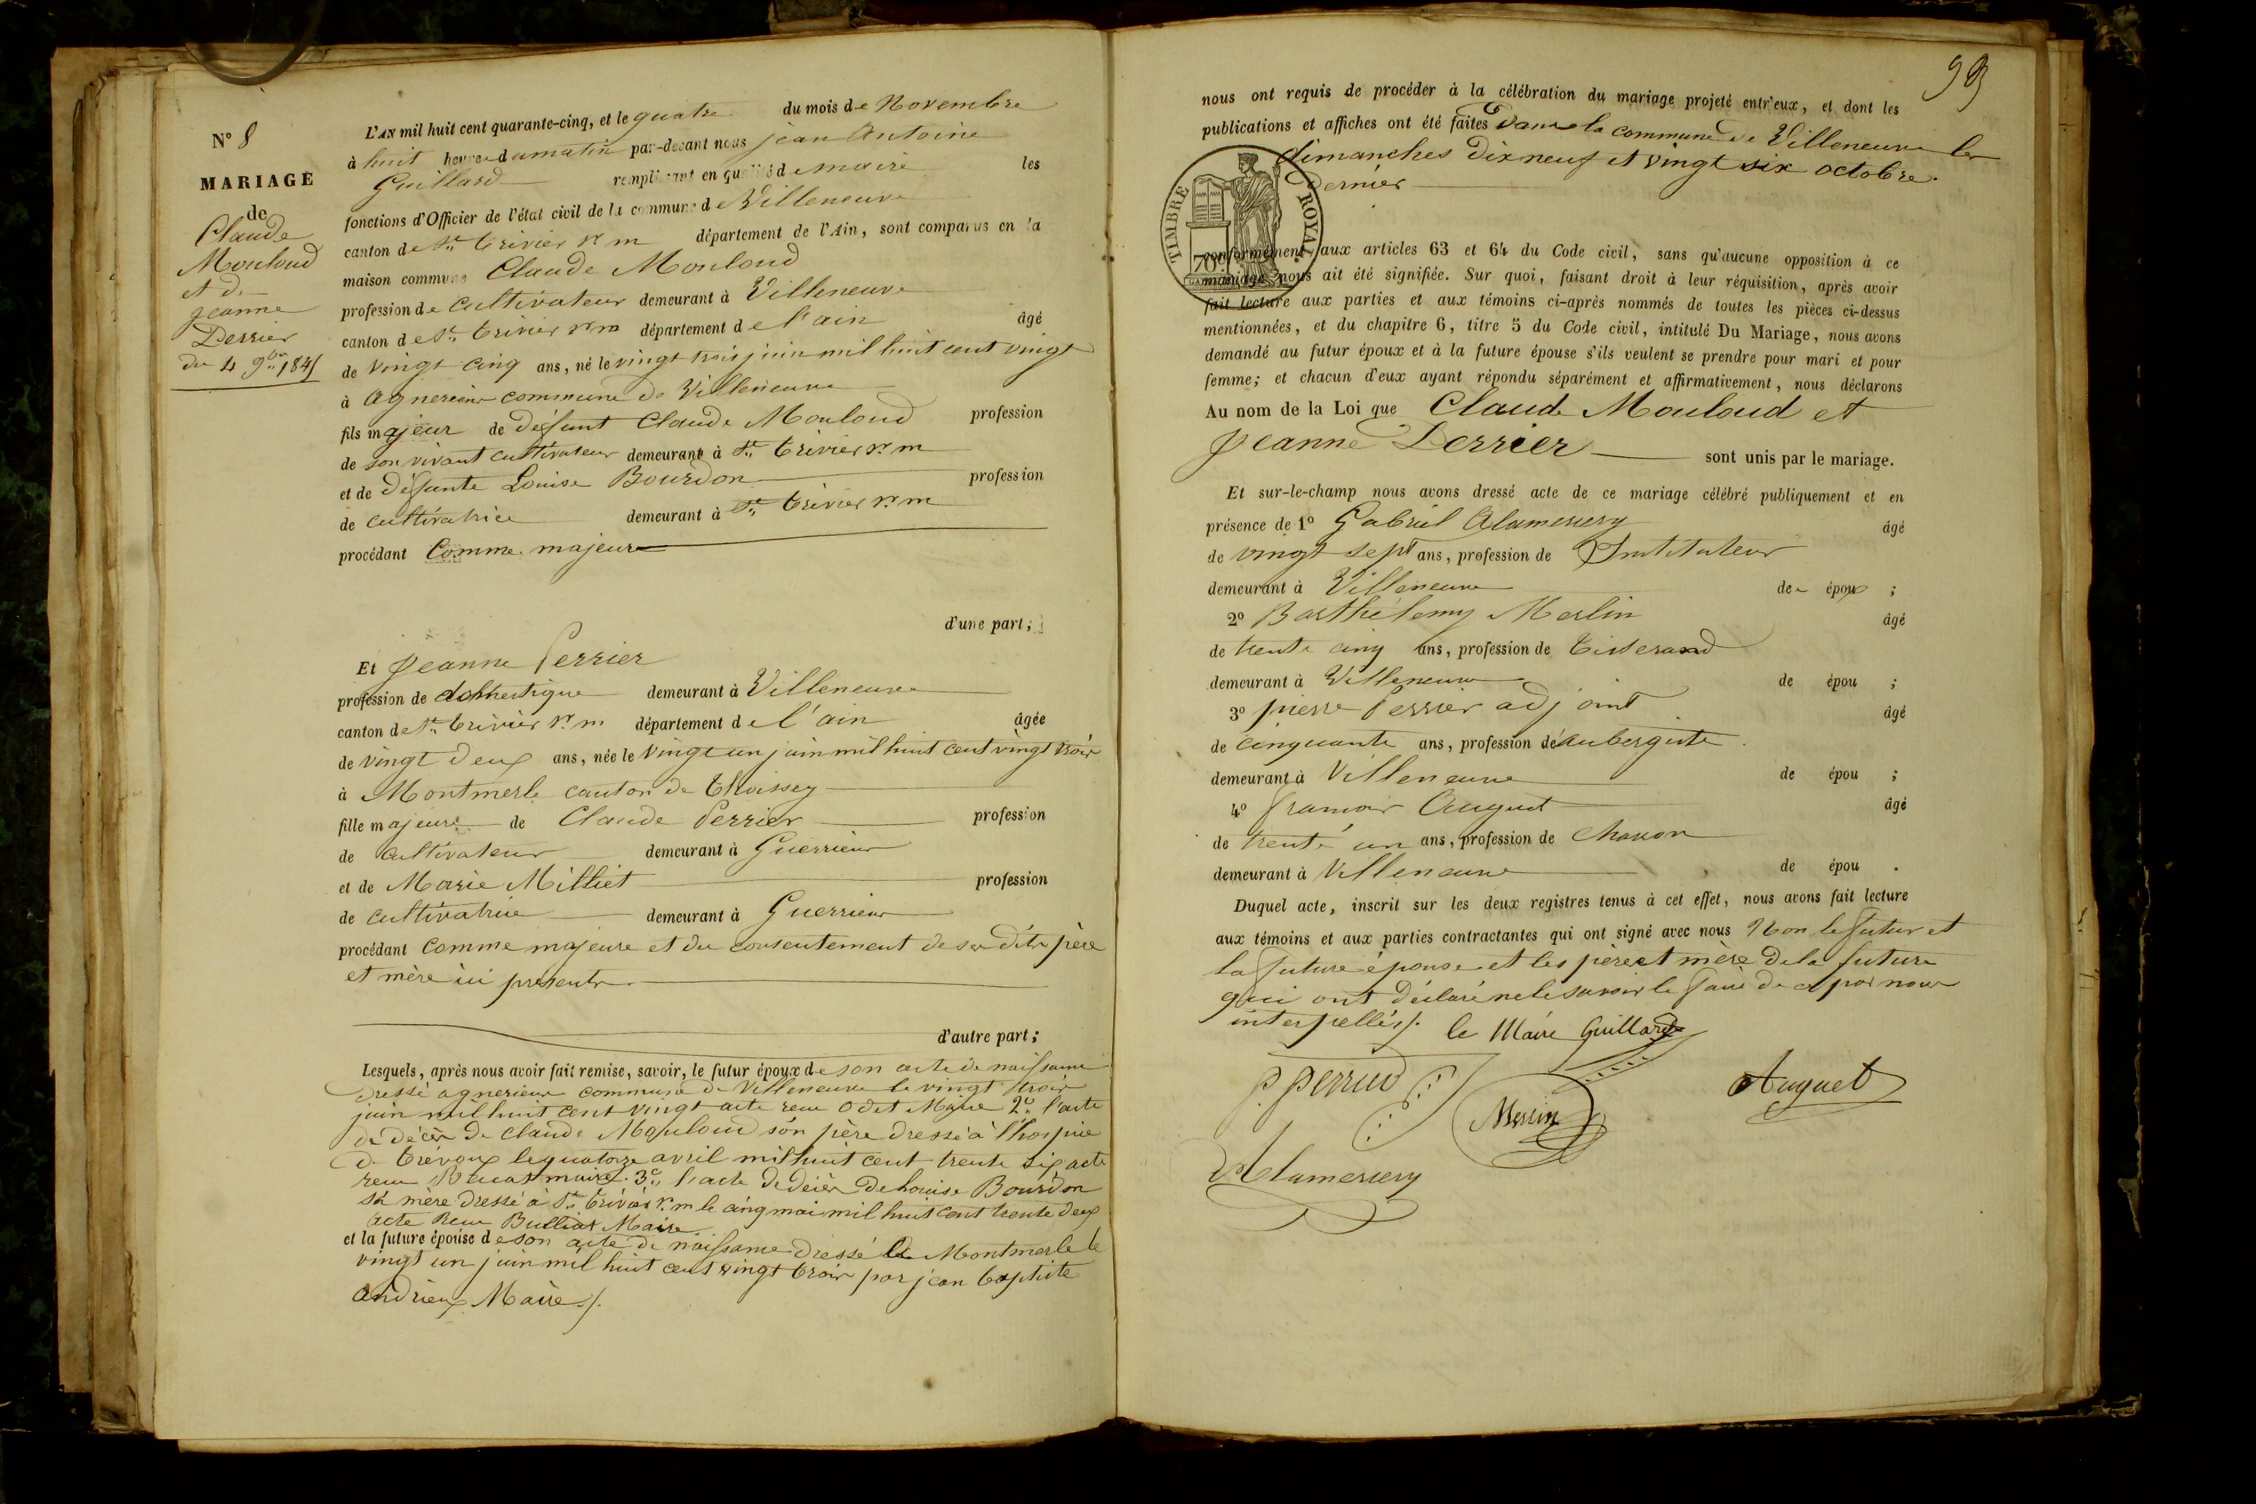 N° 8
MARIAGE
de
Claude
Mouloud
et de
Jeanne
Perrier
du 4 9bre 1845
L'AN mil huit cent quarante-cinq, et le quatre du mois de Novembre
à huit heures du matin par-devant nous jean Antoine
Guillard remplissant en qualité de maire les
fonctions d'Officier de l'état civil de la commune de Villeneuve
canton de St Trivier sr m département de l'Ain, sont comparus en la
maison commune Claude Mouloud
profession de cultivateur demeurant à Villeneuve
canton de St Trivier sr m département de l'ain âgé
de vingt cinq ans, né le vingt trois juin mil huit cent vingt
à Agnerieux commune de Villeneuve
fils majeur de défunt Claude Mouloud profession
de son vivant cultivateur demeurant à St Trivier sr m
et de défunte Louise Bourdon profession
de cultivatrice demeurant à St Trivier sr m
procédant comme majeur
d'une part;
Et Jeanne Perrier
profession de domestique demeurant à Villeneuve
canton de St Trivier sr m département de l'ain âgée
de vingt deux ans, née le vingt un juin mil huit cent vingt trois
à Montmerle canton de Thoissey
fille majeure de Claude Perrier profession
de cultivateur demeurant à Guerrieux
et de Marie Milliet profession
de cultivatrice demeurant à Guerrieux
procédant comme majeure et du consentement de ses dits père
et mère ici présents
d'autre part;
Lesquels, après nous avoir fait remise, savoir, le futur époux de son acte de naissance
dressé agnerieux commune de Villeneuve le vingt trois
juin mil huit cent vingt acte reçu Odet Maire 2° l'acte
de décès de Claude Mouloud son père dressé à l'hospice
de Trévoux le quatorze avril mil huit cent trente six acte
reçu maire. 3° l'acte de décès de Louise Bourdon
sa mère dressé à St Trivier sr m le cinq mai mil huit cent trente deux
acte reçu Bulliat Maire
et la future épouse de son acte de naissance dressé à Montmerle le
vingt un juin mil huit cent vingt trois par jean baptiste
Andrieux Maire ./.
99
nous ont requis de procéder à la célébration du mariage projeté entr'eux, et dont les
publications et affiches ont été faites Dans la commune de Villeneuve les
dimanches dix neuf et vingt six octobre
dernier
TIMBRE ROYAL
70c
conformément aux articles 63 et 64 du Code civil, sans qu'aucune opposition à ce
mariage nous ait été signifiée. Sur quoi, faisant droit à leur réquisition, après avoir
fait lecture aux parties et aux témoins ci-après nommés de toutes les pièces ci-dessus
mentionnées, et du chapitre 6, titre 5 du Code civil, intitulé Du Mariage, nous avons
demandé au futur époux et à la future épouse s'ils veulent se prendre pour mari et pour
femme; et chacun d'eux ayant répondu séparément et affirmativement, nous déclarons
Au nom de la Loi que Claude Mouloud et
Jeanne Perrier sont unis par le mariage.
Et sur-le-champ nous avons dressé acte de ce mariage célébré publiquement et en
présence de 1° Gabriel Alamercery âgé
de vingt sept ans, profession de Instituteur
demeurant à Villeneuve des époux ;
2° Barthélemy Merlin âgé
de trente cinq ans, profession de Tisserand
demeurant à Villeneuve de épou ;
3° pierre Perrier adjoint âgé
de cinquante ans, profession de aubergiste
demeurant à Villeneuve de épou ;
4° françois Auguet âgé
de trente un ans, profession de charron
demeurant à Villeneuve de épou .
Duquel acte, inscrit sur les deux registres tenus à cet effet, nous avons fait lecture
aux témoins et aux parties contractantes qui ont signé avec nous Non le futur et
la future épouse et les père et mère de la future
qui ont déclaré ne le savoir le faire de ce par nous
interpellés ./. le Maire Guillard
Merlin
Auguet
Alamercery